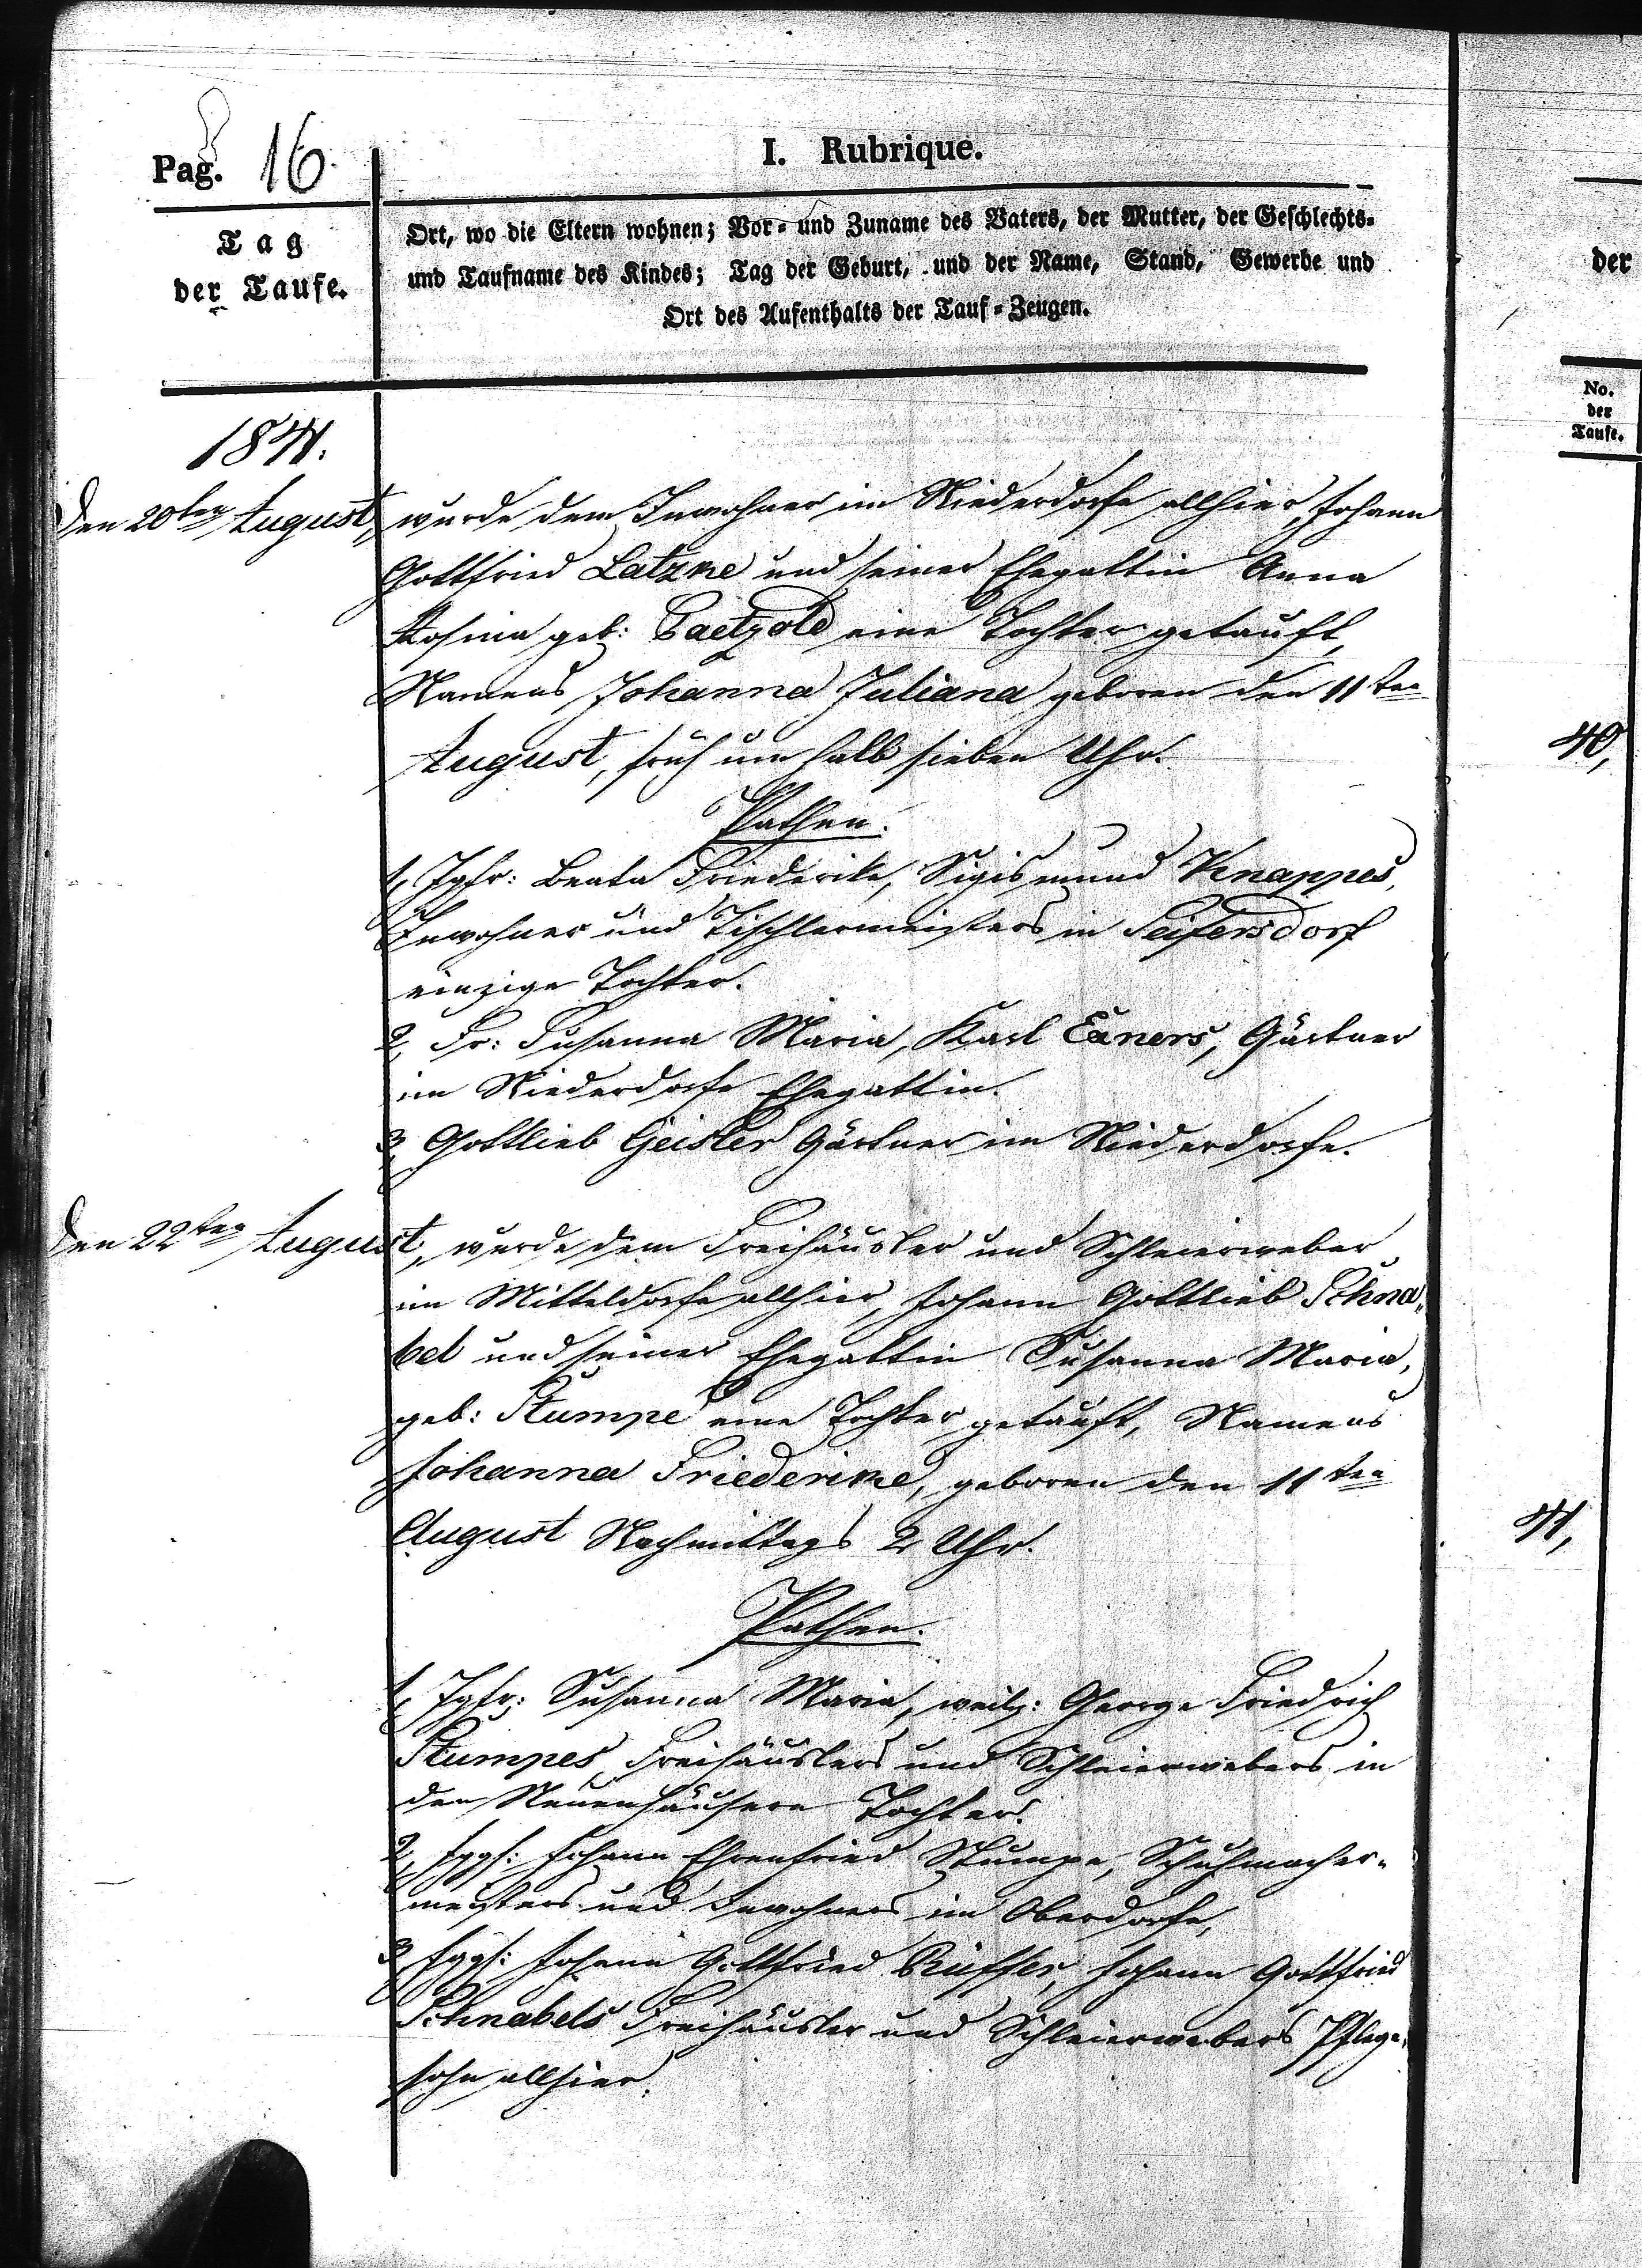 Pag. 16.
I. Rubrique.
Tag
der Taufe.
Ort, wo die Eltern wohnen; Vor- und Zuname des Vaters, der Mutter, der Geschlechts-
und Taufname des Kindes; Tag der Geburt, und der Name, Stand, Gewerbe und
Ort des Aufenthalts der Tauf-Zeugen.
1841.
Den 20ten August, wurde dem Inwohner im Niederdorfe allhier, Johann
Gottfried Latzke und seiner Ehegattin Anna
Rosina geb: Paetzold eine Tochter getauft,
Namens Johanna Juliana geboren den 11ten
August, früh um halb sieben Uhr.
Pathen.
1, Jgfr: Beata Friederike, Sigismund Knappes,
Inwohner und Tischlermeisters in Seifersdorf
einzige Tochter.
2, Fr: Susanna Maria, Karl Exners, Gärtner
im Niederdorfe Ehegattin.
3, Gottlieb Geisler Gärtner im Niederdorfe.
Den 22ten August, wurde dem Freihäusler und Schleierweber
im Mitteldorfe allhier, Johann Gottlieb Schna„
bel und seiner Ehegattin Susanna Maria,
geb: Stumpe eine Tochter getauft, Namens
Johanna Friederike, geboren den 11ten
August Nachmittags 2 Uhr.
Pathen.
1, Jgfr: Susanna Maria, weil: George Friedrich
Stumpes, Freihäuslers und Schleierwebers in
den Neuenhäusern Tochter.
2, Jggs: Johann Ehrenfried Stumpe, Schuhmacher-
meisters und Inwohners im Oberdorfe,
3, Jggs: Johann Gottfried Rüffer, Johann Gottfried
Schnabels Freihäusler und Schleierwebers Pflege„
sohn allhier.
der
No.
der
Taufe.
40,
41,